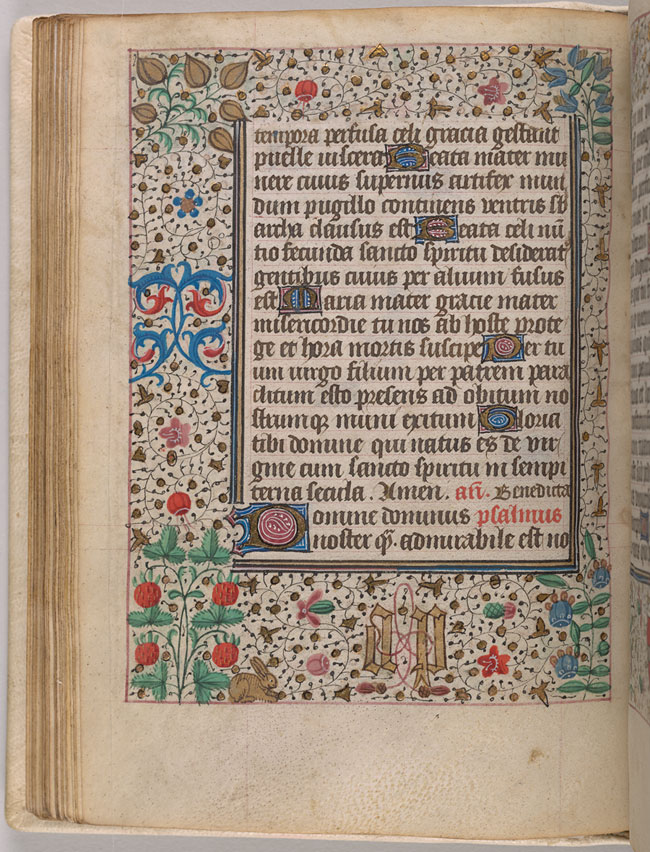 tempora perfusa celi gracia gestant
puelle viscera Beata mater mu
nere cuius supernus artifex mun
dum pugillo continens ventris sb
archa clausus est Beata celi nũ
tio fecunda sancto spiritu desiderat
gentibus cuius per aluum fusus
est Maria mater gracie mater
misericordie tu nos ab hoste prote
ge et hora mortis suscipe Per tu
um virgo filium per patrem para
clitum esto presens ad obitum no
strumqꝫ muni exitum Gloria
tibi domine qui natus es de vir
gine cum sancto spiritu in sempi
terna secula . Amen . an̄. Benedicta
Domine dominus psalmus
noster q̃. admirabile est no